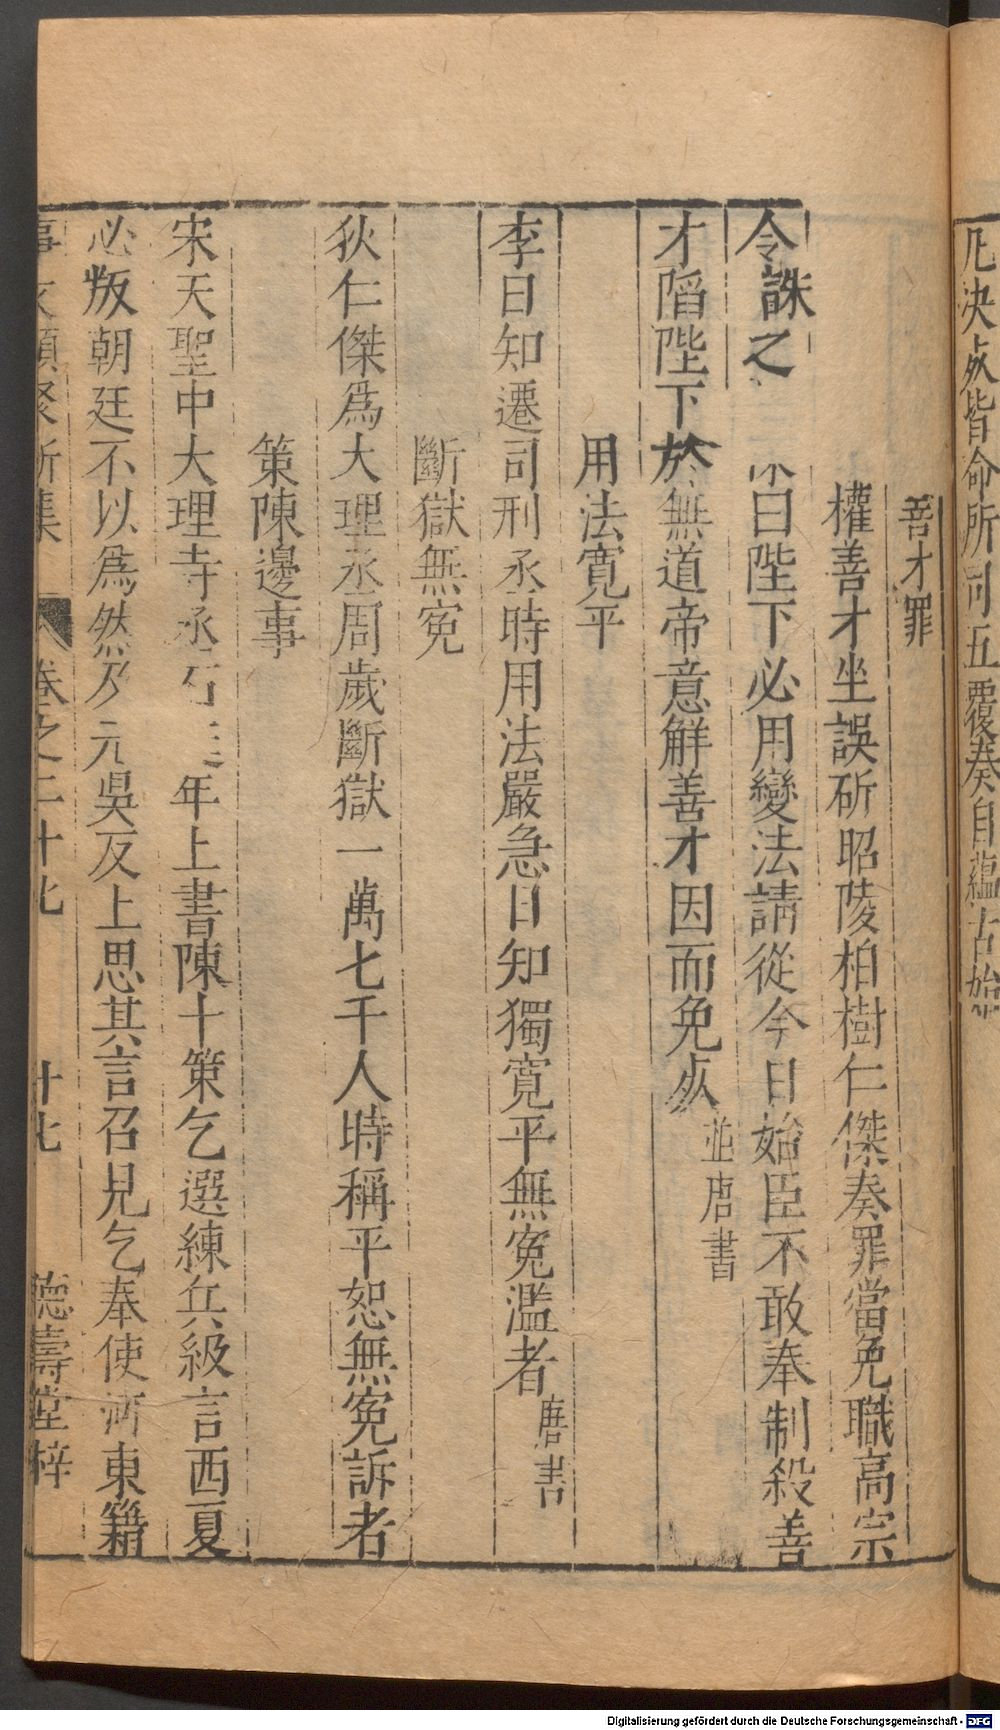 凡決死皆命所司五覆奏自蘊古始
善才罪
權善才坐誤斫昭陵柏樹仁傑奏罪當免職高宗
令誅之 曰陛下必用變法請從今日始臣不敢奉制殺善
才陷陛下於無道帝意解善才因而免死並唐書
用法寬平
李日知遷司刑丞時用法嚴急日知獨寬平無冤濫者唐書
斷獄無冤
狄仁傑爲大理丞周歲斷獄一萬七千人時稱平恕無冤訴者
策陳邊事
宋天聖中大理寺丞 年上書陳十策乞選練兵級言西夏
必叛朝廷不以爲然及元吳反上思其言召見乞奉使河東籍
事文類聚新集 卷之二十七 十七 德壽堂梓
Digitalisierung gefördert durch die Deutsche Forschungsgemeinschaft - DFG